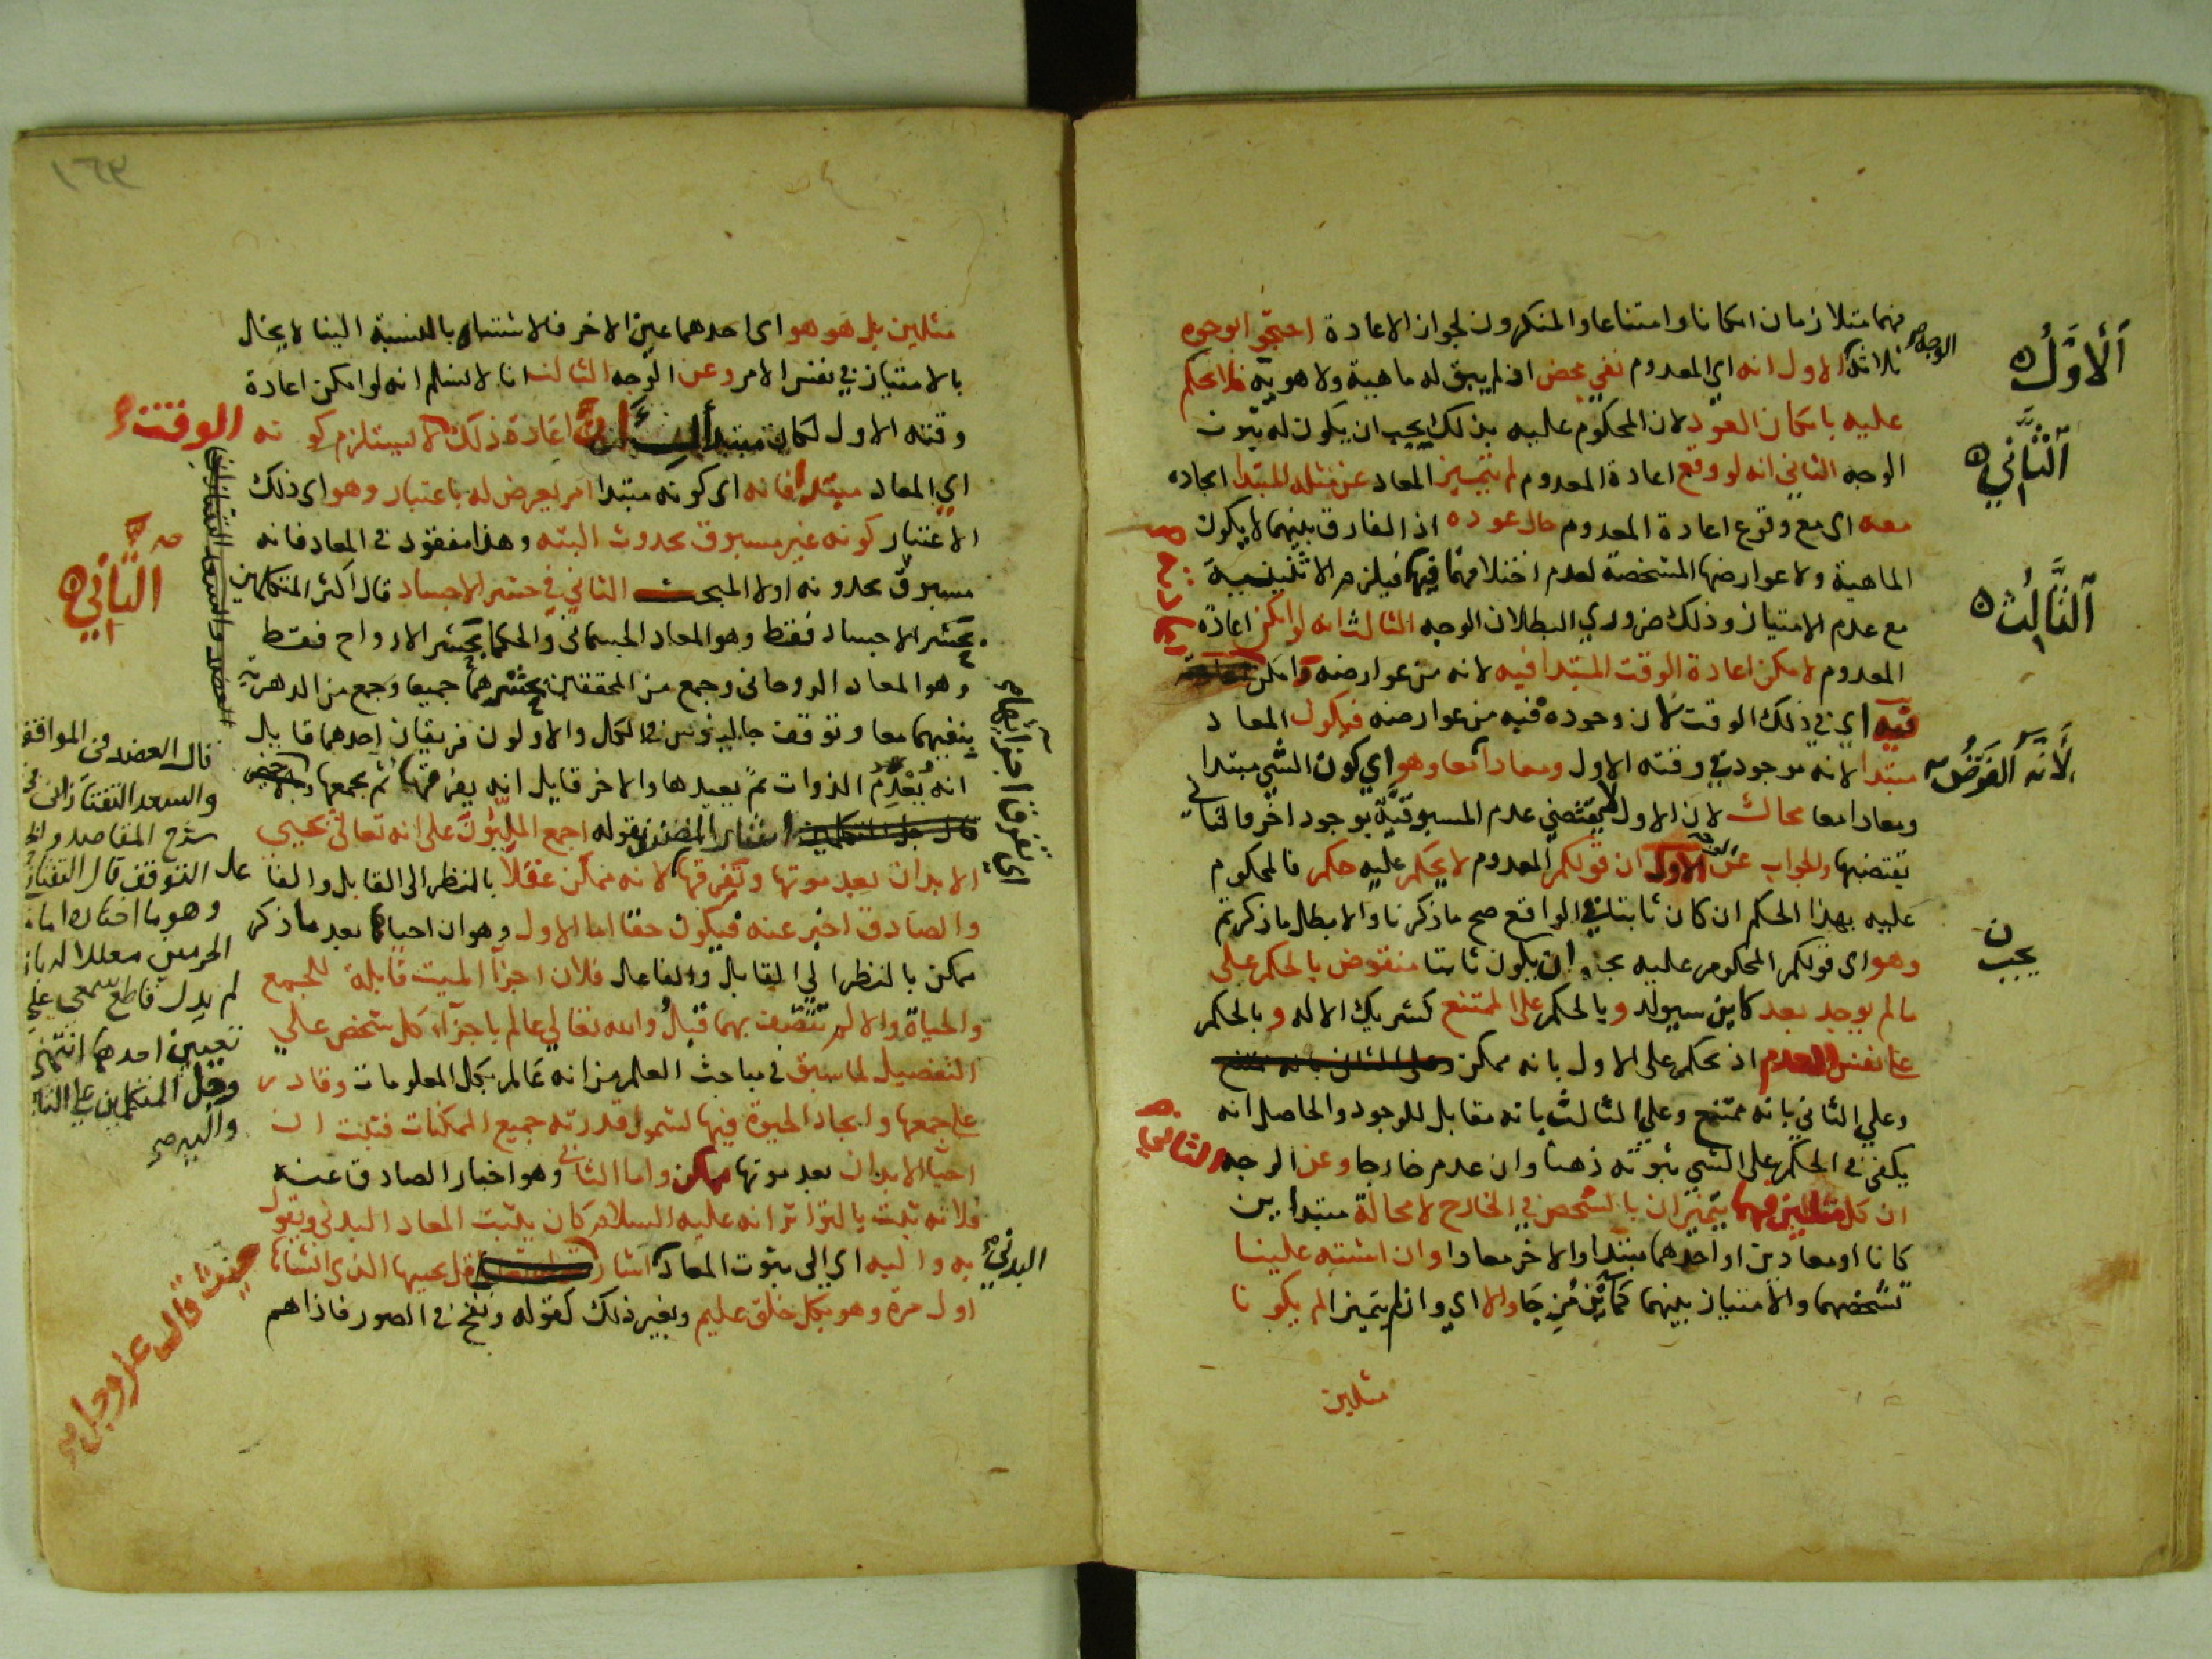 فهما متلازمان امكانا وامتناعا والمنكرون لجواز الاعادة احتجوا بوجوه
ثلاثة الاول انه اي المعدوم نفي محض اذ لم يبق له ماهية ولا هوية فالحكم
عليه بامكان العود لان المحكوم عليه بذلك يجب ان يكون له ثبوت
الوجه الثاني انه لو وقع اعادة المعدوم لم يتميز المعاد عن مثله المبتدا ايجاده
معه اي مع وقوع اعادة المعدوم حال عوده اذ الفارق بينهما لا يكون
الماهية ولا عوارضها المشخصة لعدم اختلافهما فيها فيلزم الاثنينية
مع عدم الامتياز وذلك ضروري البطلان الوجه الثالث انه لو امكن اعادة
المعدوم لامكن اعادة الوقت المبتدا فيه لانه من عوارضه وامكن
فيه اي في ذلك الوقت لان وجوده فيه من عوارضه فيكون المعاد
مبتدا لانه موجود في وقته الاول ومعادا معا وهو اي كون الشي مبتدا
ومعادا معا محال لان الاول يقتضي عدم المسبوقية بوجود اخر والثاني
يقتضيها والجواب عن الوجه الاول ان قولكم المعدوم لا يحكم عليه حكم فالمحكوم
عليه بهذا الحكم ان كان ثابتا في الواقع صح ما ذكرنا والا بطل ما ذكرتم
وهو اي قولكم المحكوم عليه يجب ان يكون ثابتا منقوض بالحكم على
ما لم يوجد بعد كاين سيولد وبالحكم على الممتنع كشريك الاله وبالحكم
على نفس العدم اذ نحكم على الاول بانه ممكن وعلى الثاني بانه ممتنع
وعلي الثاني بانه ممتنع وعلي الثالث بانه مقابل للوجود والحاصل انه
يكفي في الحكم على الشي ثبوته ذهنا وان عدم خارجا وعن الوجه الثاني
ان كل مثلين فهما يتميزان بالتشخص في الخارج لا محالة مبتداين
كانا او معادين او احدهما مبتدا والاخر معادا وان اشتبه علينا
تشخصهما والامتياز بينهما كماين من جا والا اي وان لم يتميزا لم يكونا
مثلين
الوجه
الاول
الثاني
الثالث
لانه الفرض
يجب
مثلين بل هو هو اي احدهما عين الاخر فالاشتباه بالنسبة الينا لا يخل
بالامتياز في نفس الامر وعن الوجه الثالث انا لا نسلم انه لو امكن اعادة
وقته الاول لكان مبتدا لان اعادة ذلك الوقت لا يستلزم كونه
اي المعاد مبتدا فانه اي كونه مبتدا امر يعرض له باعتبار وهو اي ذلك
الاعتبار كونه غير مسبوق بحدوث البتة وهذا مفقود في المعاد فانه
مسبوق بحدوثه اولا المبحث الثاني في حشر الاجساد قال اكثر المتكلمين
يحشر الاجساد فقط وهو المعاد الجسماني والحكما يحشر الارواح فقط
وهو المعاد الروحاني وجمع من المحققين يحشرهما جميعا وجمع من الدهرية
ينفيهما معا وتوقف جالينوس في الكل والاولون فريقان احدهما قايل
انه يعدم الذوات ثم يعيدها والاخر قايل انه يفرقها ثم يجمعها
بقوله اجمع المليون على انه تعالى يحيي
الابدان بعد موتها وتفرقها لانه ممكن عقلا بالنظر الى القابل والفا
والصادق اخبر عنه فيكون حقا اما الاول وهو ان احياها بعد ما ذكر
ممكن بالنظر الي القابل والفاعل فلان اجزآ الميت قابلة للجمع
والحياة والا لم تتصف بهما قبل والله تعالي عالم باجزآء كل شخص علي
التفصيل لما سبق في مباحث العلم من انه عالم بكل المعلومات وقادر
على جمعها وايجاد الحيوة فيها لشمول قدرته جميع الممكنات فثبت ان
احيا الابدان بعد موتها ممكن واما الثاني وهو اخبار الصادق عنه
فلانه ثبت بالتواتر انه عليه السلام كان يثبت المعاد البدني ويقول
به واليه اي الى ثبوت المعاد البدني اشار قل يحييها الذي انشاها
اول مرة وهو بكل خلق عليم وبغير ذلك كقوله ونفخ في الصور فاذا هم
الثاني
قال العضد في المواقف
والسعد التفتازاني في
شرح المقاصد
التوقف قال
وهو ما اختاره امام
الحرمين معللا له بانه
لم يدل قاطع سمعي على
تعيين احدهما انتهى
وجل المتكلمين على
حيث قال عز وجل
اي تفرقت اجزآوها